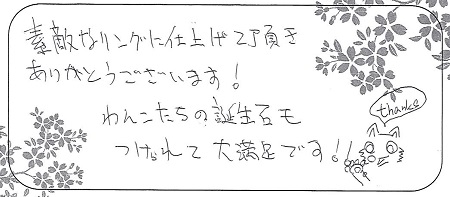 素敵なリングに仕上げて頂き
ありがとうございます!
わんこたちの誕生石も
つけれて大満足です!!
thanks